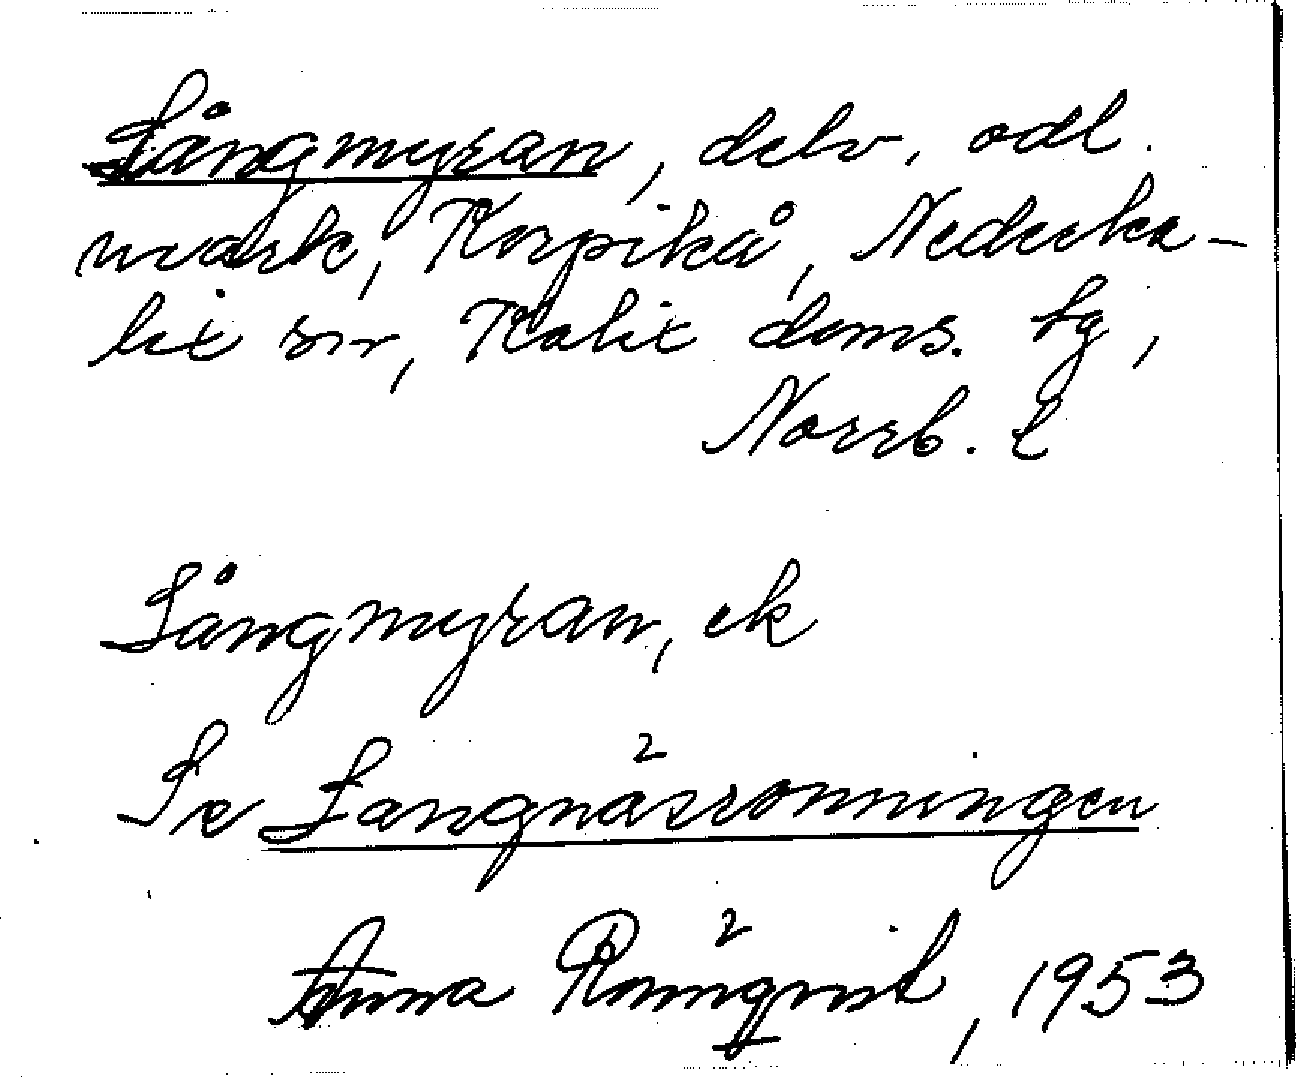 Långmyran, delv. odl.
mark, Korpikå, Nederka-
lix sn, Kalix doms. tg,
Norrb. l
Långmyran, ek
Se Långnäsrönningen
Anna Rönnqvist, 1953